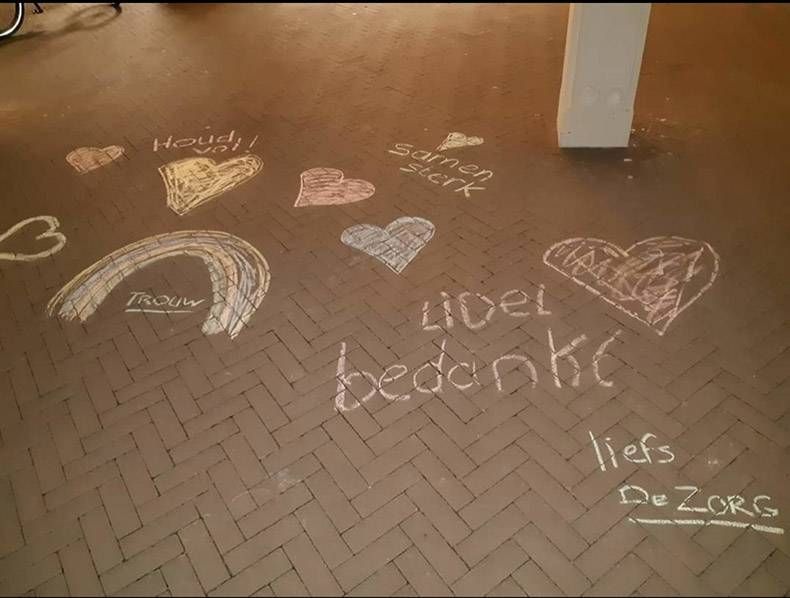 Houd
vol!!
Samen
sterk
TROUW
bedankt
liefs
De ZORG